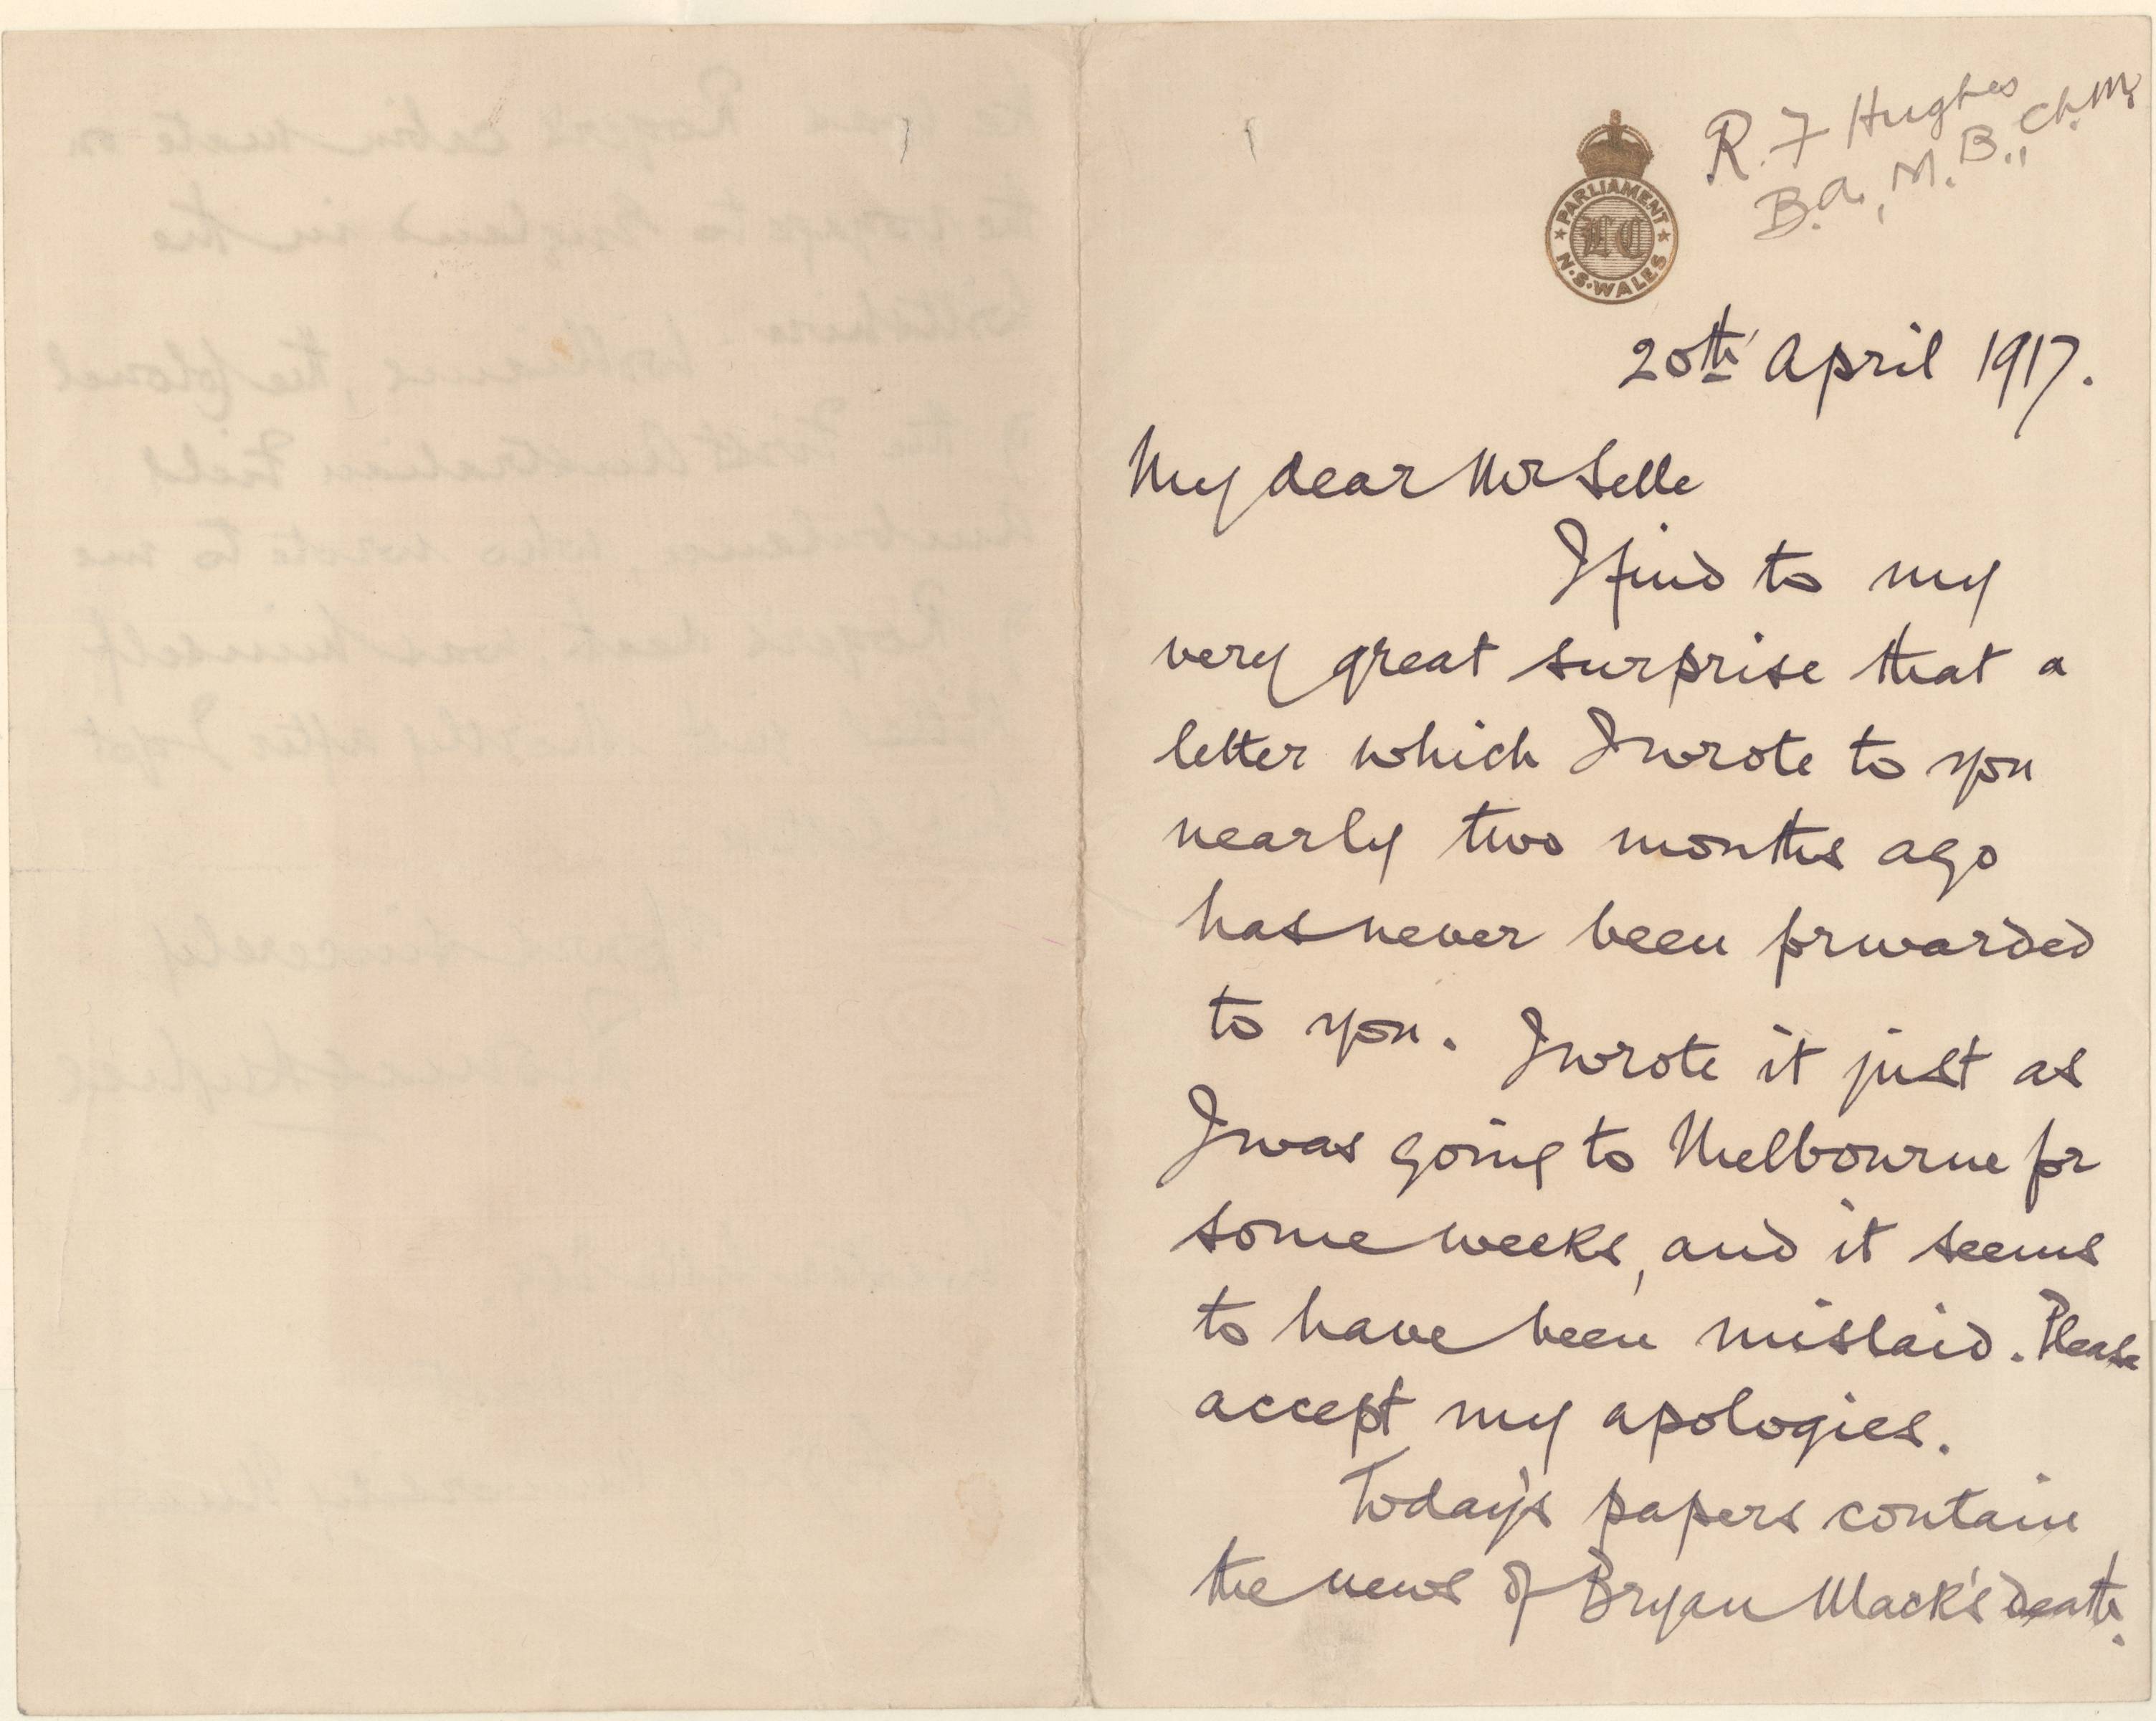 R. F Hughes
B.A., M.B., Ch.M.
PARLIAMENT
LC
N.S.WALES
20th April 1917.
My dear Mr Selle
I find to my
very great surprise that a
letter which I wrote to you
nearly two months ago
has never been forwarded
to you. I wrote it just as
I was going to Melbourne for
some weeks, and it seems
to have been mislaid. Please
accept my apologies.
Today's papers contain
the news of Bryan Mack's death.